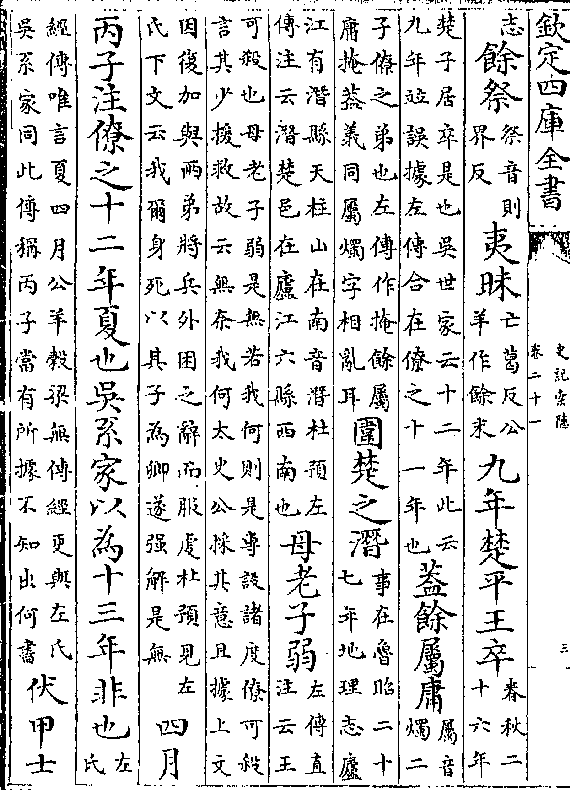 欽定四庫全書
史記索隱
卷二十一
三
志餘祭祭音則界反夷昧亡葛反公羊作餘末九年楚平王卒春秋二十六年
楚子居卒是也吳世家云十二年此云九年竝誤據左傳合在僚之十一年也蓋餘屬庸屬音燭二
子僚之弟也左傳作掩餘屬庸掩蓋義同屬燭字相亂耳圍楚之潛事在魯昭二十七年地理志廬
江有潛縣天柱山在南音潛杜預左傳注云潛楚邑在廬江六縣西南也母老子弱左傳直注云王
可殺也母老子弱是無若我何則是專設諸度僚可殺言其少援救故云無奈我何太史公採其意且據上文
因復加與兩弟將兵外困之辭而服虔杜預見左氏下文云我爾身死以其子為卿遂强解是無四月
丙子注僚之十二年夏也吳系家以為十三年非也左氏
經傳唯言夏四月公羊穀梁無傳經更與左氏吳系家同此傳稱丙子當有所據不知出何書伏甲士